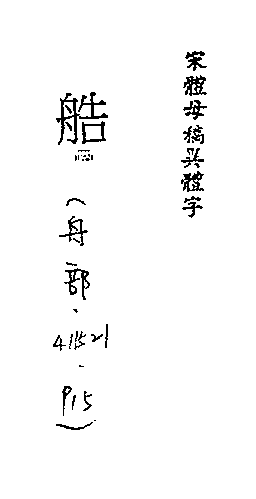 宋體母稿異體字
艁
（舟部．411521．P15）